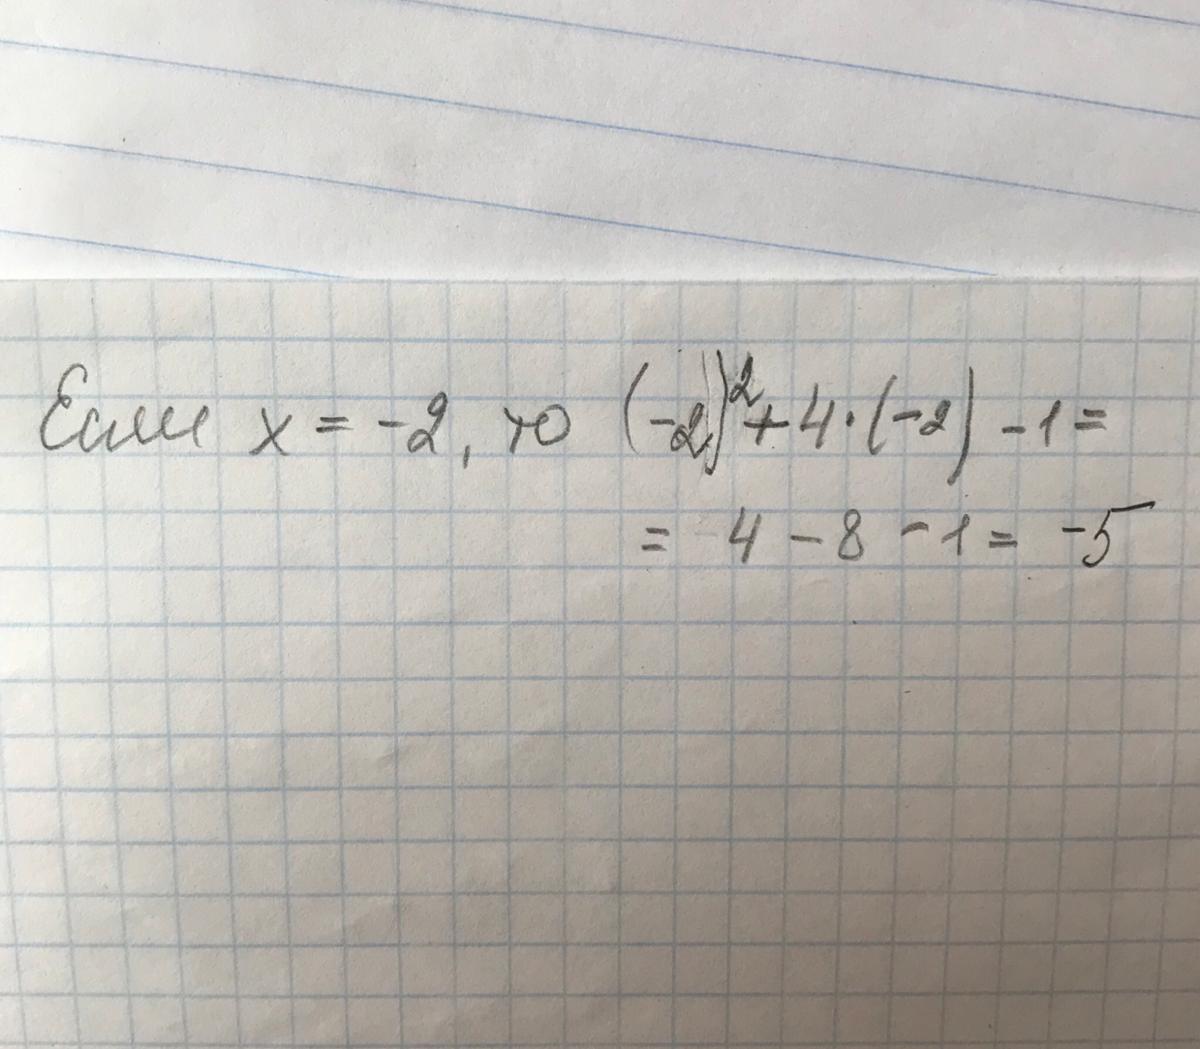 Если x = -2, то (-2)² + 4·(-2) - 1 =
= 4 - 8 - 1 = -5